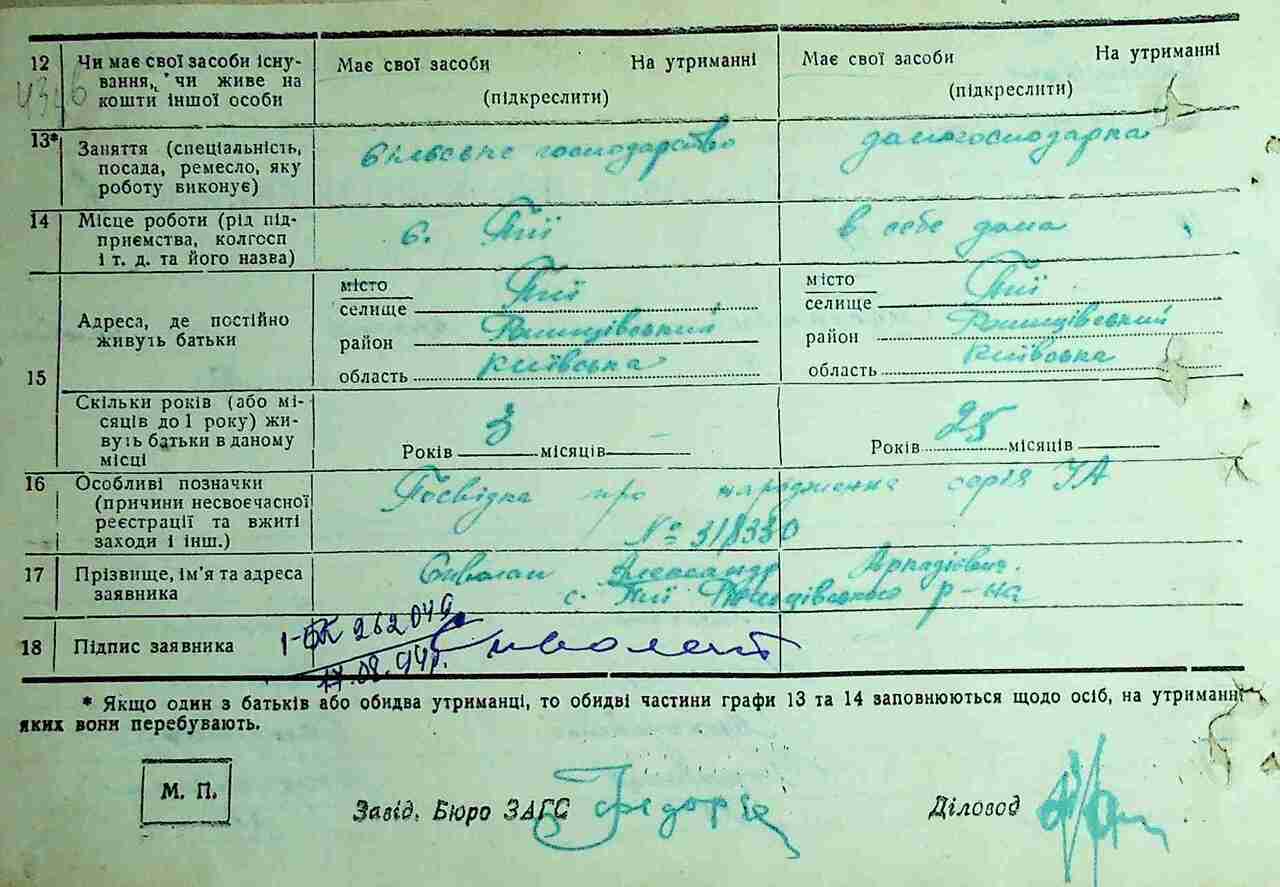 12 Чи має свої засоби існу- Має свої засоби На утриманні Має свої засоби На утриманні
вання, чи живе на
кошти іншої особи (підкреслити) (підкреслити)
13* Заняття (спеціальність, сільське господарство домогосподарка
посада, ремесло, яку
роботу виконує)
14 Місце роботи (рід під- с. Пії в себе дома
приємства, колгосп
і т. д. та його назва)
15 Адреса, де постійно
живуть батьки
місто
селище Пії
район
область Київська
місто
селище Пії
район
область Київська
Скільки років (або мі-
сяців до 1 року) жи-
вуть батьки в даному
місці
Років 3 місяців —
Років 25 місяців
16 Особливі позначки Посвідка про народження серія УА
(причини несвоєчасної № 318330
реєстрації та вжиті
заходи і інш.)
17 Прізвище, ім'я та адреса Александр Аркадієвич.
заявника с. Пії р-на
18 Підпис заявника
262049
17.08.94р.
* Якщо один з батьків або обидва утриманці, то обидві частини графи 13 та 14 заповнюються щодо осіб, на утриманні
яких вони перебувають.
М. П.
Завід. Бюро ЗАГС Діловод